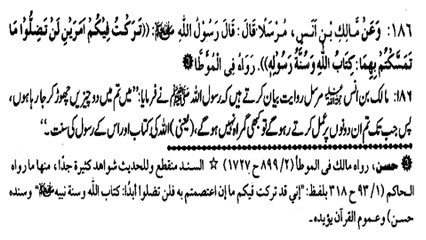 ١٨٦: وَعَنْ مَّالِكِ بْنِ أَنَسٍ، مُرْسَلًا قَالَ: قَالَ رَسُوْلُ اللّٰهِ ﷺ: ((تَرَكْتُ فِيْكُمْ اَمْرَيْنِ لَنْ تَضِلُّوْا مَا
تَمَسَّكْتُمْ بِهِمَا: كِتَابُ اللّٰهِ وَسُنَّةُ رَسُوْلِهٖ)). رَوَاهُ فِی الْمُوَطَّأِ
۱۸۶: مالک بن انس مرسل روایت بیان کرتے ہیں کہ رسول اللہ ﷺ نے فرمایا: ’’میں تم میں دو چیزیں چھوڑ کر جا رہا ہوں،
پس جب تک تم ان دونوں پر عمل کرتے رہو گے تو کبھی گمراہ نہیں ہو گے، (یعنی) اللہ کی کتاب اور اس کے رسول کی سنت۔‘‘
حسن، رواه مالك في الموطأ (٢/ ٨٩٩ ح ١٧٢٧) ☆ السند منقطع وللحديث شواهد كثيرة جدًا، منها ما رواه
الحاكم (١/ ٩٣ ح ٣١٨ بلفظ: "إني قد تركت فيكم ما إن اعتصمتم به فلن تضلوا أبدًا: كتاب الله وسنة نبيه ﷺ" وسنده
حسن) وعموم القرآن يؤيده.